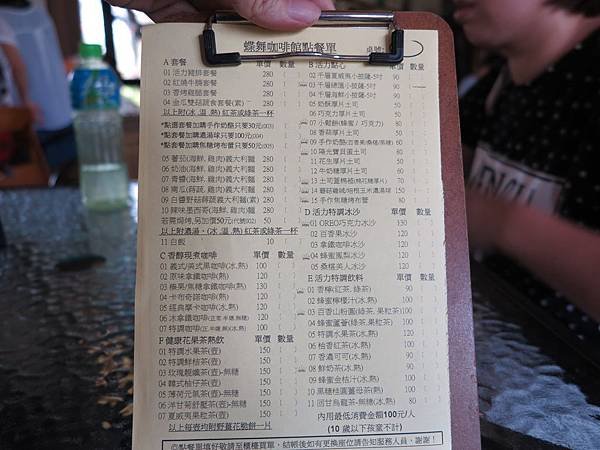 蝶舞咖啡館點餐單
桌號:
A 套餐 單價 數量
01 活力豬排套餐 280
02 紅燒牛腩套餐 280
03 香烤雞腿套餐 280
04 金瓜雙菇蔬食套餐(素) 280
以上附(冰.溫.熱) 紅茶或綠茶一杯
*點選套餐加購手作奶酪只要30元(003)
*點套餐加購濃湯球只要30元(004)
*點套餐加購焦糖烤布蕾只要30元
05 蕃茄(海鮮,雞肉)義大利麵 230
06 奶油(海鮮,雞肉)義大利麵 230
07 青醬(海鮮,雞肉)義大利麵 230
08 南瓜(蔬菇,雞肉)義大利麵 230
09 白醬野菇蔬義大利麵(素) 230
10 辣味墨西哥(海鮮,雞肉)麵 230
若需焗烤,另加價50元(代號002) 50
以上附濃湯、(冰.溫.熱) 紅茶或綠茶一杯
11 白飯 10
C 香醇現煮咖啡 單價 數量
01 義式/美式黑咖啡(冰,熱) 100
02 原味拿鐵咖啡(熱) 120
03 榛果/焦糖拿鐵咖啡(熱) 130
04 卡布奇諾咖啡(熱) 120
05 經典摩卡咖啡(冰,熱) 130
06 冰拿鐵咖啡 130
07 特調咖啡 100
F 健康花果茶熱飲 單價 數量
01 特調水果茶(壺) 150
02 特調鮮桔茶(壺) 150
03 玫瑰靚孅茶(壺)-無糖 150
04 韓式柚仔茶(壺) 150
05 薄荷元氣茶(壺)-無糖 150
06 洋甘菊紓壓茶(壺)-無糖 150
07 夏威夷果茶(壺) 150
以上每壺均附野薑花脆餅一片
B 活力點心 單價 數量
02 千層夏威夷小披薩-5吋 90
03 千層總匯小披薩-5吋 90
04 千層海鮮小披薩-5吋 90
05 奶酥厚片土司 50
06 巧克力厚片土司 50
07 小鬆餅(蜂蜜/巧克力) 80
08 香蒜厚片土司 50
09 手作奶酪 60
10 陽光寶貝蛋土司 60
11 花生厚片土司 50
12 牛奶糖厚片土司 50
13 土司蓋棉褓(棉花糖厚片) 70
14 蘑菇雞絨/培根玉米濃湯球 150
15 手作焦糖烤布蕾 60
D 活力特調冰沙 單價 數量
01 OREO巧克力冰沙 130
02 百香果冰沙 120
03 拿鐵咖啡冰沙 120
04 蜂蜜鳳梨冰沙 120
05 桑椹美人冰沙 120
E 活力特調飲料 單價 數量
01 香檸(紅茶,綠茶) 90
02 蜂蜜檸檬汁(冰,熱) 100
03 百香山粉圓(綠茶,果粒茶) 100
04 蜂蜜蘆薈(綠茶,果粒茶) 100
05 特調水果茶(冰,熱) 130
06 柚香紅茶(冰,熱) 100
07 香濃可可(冰,熱) 90
08 鮮奶茶(冰,熱) 90
09 蜂蜜金桔汁(冰,熱) 100
10 黑糖桂圓薑母茶(熱) 100
11 回甘烏龍茶-無糖(冰,熱) 80
內用最低消費金額100元/人
(10 歲以下孩童不計)
◎點餐單填好敬請至櫃檯買單,結帳後如有更換座位請告知服務人員,謝謝!